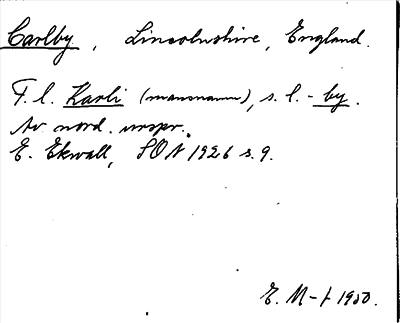 Carlby, Lincolnshire, England.
F. l. Karli (mansnamn), s. l. - by.
Av nord. urspr.
E. Ekwall, SON 1926 s. 9.
E. M-t 1950.